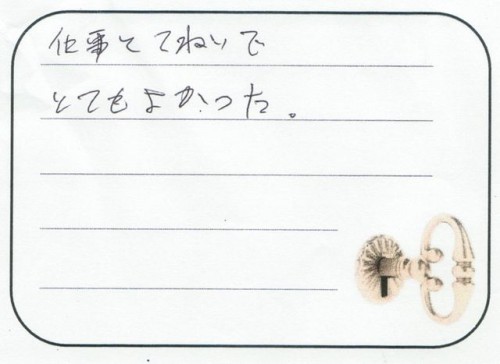 仕事とてねいで
とてもよかった。